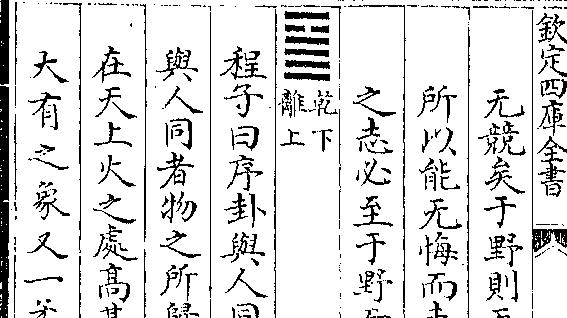 欽定四庫全書
无競矣于野則
所以能无悔而
之志必至于野
乾下
離上
程子曰序卦與人同
與人同者物之所歸
在天上火之處高其
大有之象又一